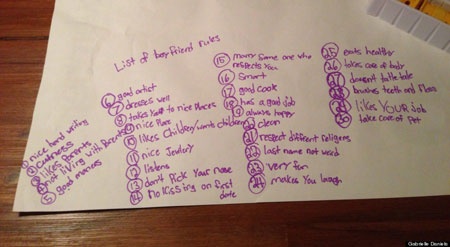 List of boyfriend rules
① nice hand writing
② kindness
③ likes Parents
④ not living with Parents
⑤ good manners
⑥ good artist
⑦ dresses well
⑧ takes you to nice places
⑨ nice
⑩ likes children/wants children
⑪ nice Jewlery
⑫ listens
⑬ don't Pick Your nose
⑭ no kissing on first
date
⑮ marry some one who
respects you
⑯ Smart
⑰ good cook
⑱ has a good job
⑲ always happy
⑳ clean
㉑ respect different religens
㉒ last name not weird
㉓ very fun
㉔ makes You laugh
㉕ eats healthy
㉖ takes care of body
㉗ doesn't
㉘ brushes teeth and floss
㉙ likes YOUR job
㉚ take care of pet
Gabrielle Daniels